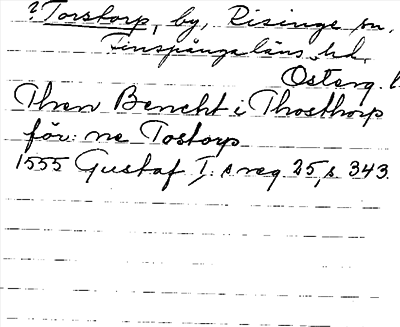 ? Torstorp, by, Risinge sn.
Finspånga läns hd.
Österg. l
Then Bencht i Thosthorp
för: ne Tostorp
1555 Gustaf I:s reg 25, s 343.